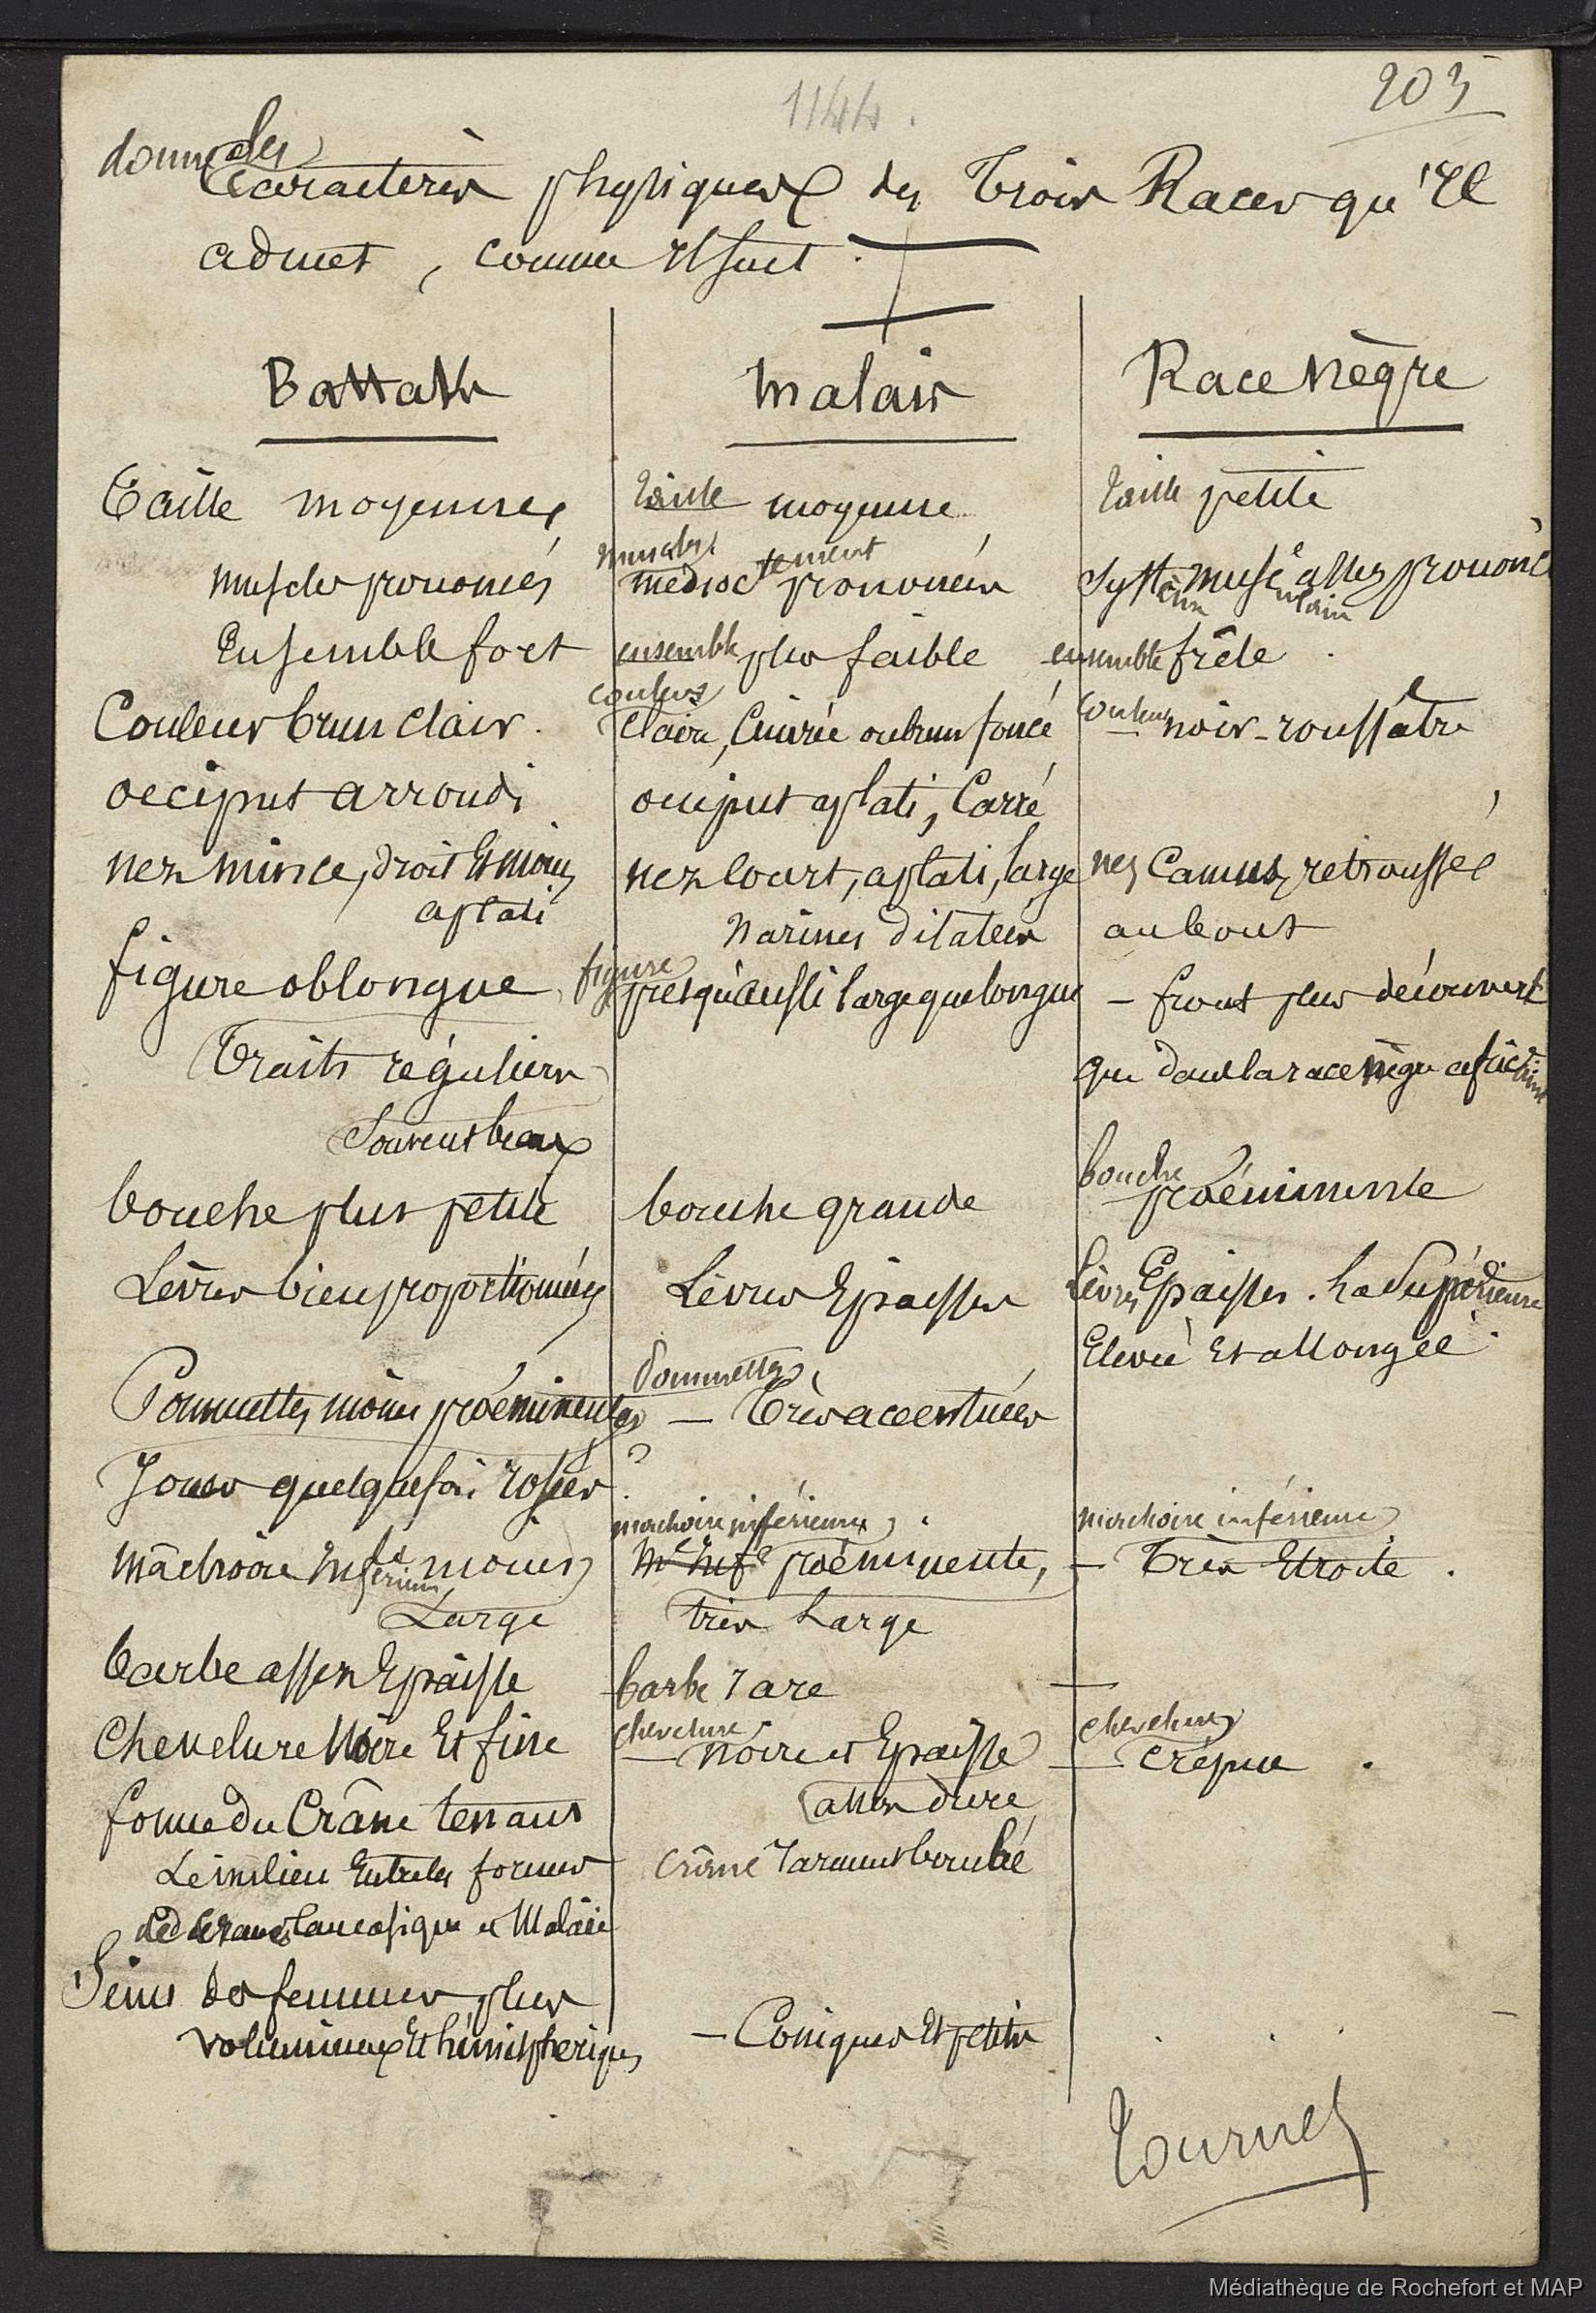 203
1144.
donne les
Caractères physiques des Trois Races qu'Il
admet, comme Il suit :
Battaks
Taille moyenne,
muscles prononcés
Ensemble fort
Couleur brun clair.
occiput arrondi
nez mince, droit Et moins
aplati
figure oblongue,
Traits réguliers
Souvent beaux
bouche plus petite
Lèvres bien proportionnées
Pommettes moins proéminentes
Joues quelquefois rosées
mâchoire Inférieure moins
Large
barbe assez Epaisse
Chevelure Noire Et fine
forme du Crâne tenant
Le milieu Entre les formes
des Crânes Caucasique et Malaie
Seins des femmes plus
volumineux Et hémisphériques
Malais
Taille moyenne
muscles
médiocrement prononcés
ensemble plus faible
couleur
Claire, Cuivrée ou brun foncé
occiput aplati, Carré
nez Court, aplati, large
Narines dilatées
figure
presqu'aussi large que longue
bouche grande
Lèvres Epaisses
Pommettes
— Très accentuées
?
machoire inférieure
mre Infre proéminente,
très Large
barbe rare
chevelure
— noire et Epaisse
assez dure
Crâne Carrément bombé
— Coniques Et petits
Race Nègre
Taille petite
Système musculaire assez prononcé
ensemble frêle.
couleur
— noir-roussâtre
nez Camus, retroussé
au bout
— front plus découvert
que dans la race nègre africaine
bouche
proéminente
lèvres Epaisses. La Supérieure
Elevée Et allongée.
machoire inférieure
— Très Etroite.
—
chevelure
— crépue.
Tournez
Médiathèque de Rochefort et MAP